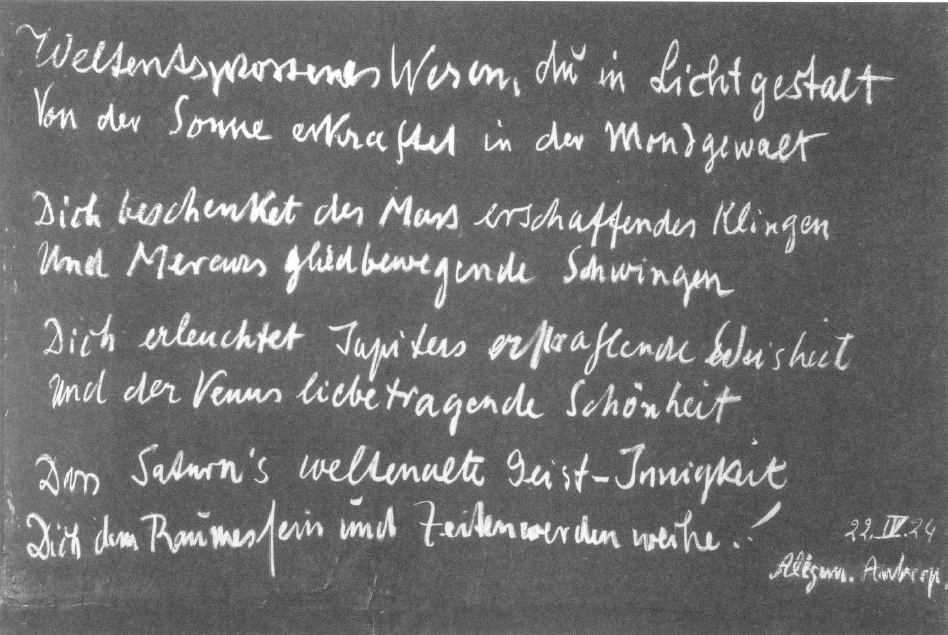 Weltentsprossenes Wesen, du in Lichtgestalt
Von der Sonne erkraftet in der Mondgewalt
Dich beschenket des Mars erschaffendes Klingen
Und Mercurs gliedbewegende Schwingen
Dich erleuchtet Jupiters erstrahlende Weisheit
Und der Venus liebetragende Schönheit
Dass Saturn's weltenalte Geist-Innigkeit
Dich dem Raumessein und Zeitenwerden weihe!
22.IV.24
Allgem. Anthrop.